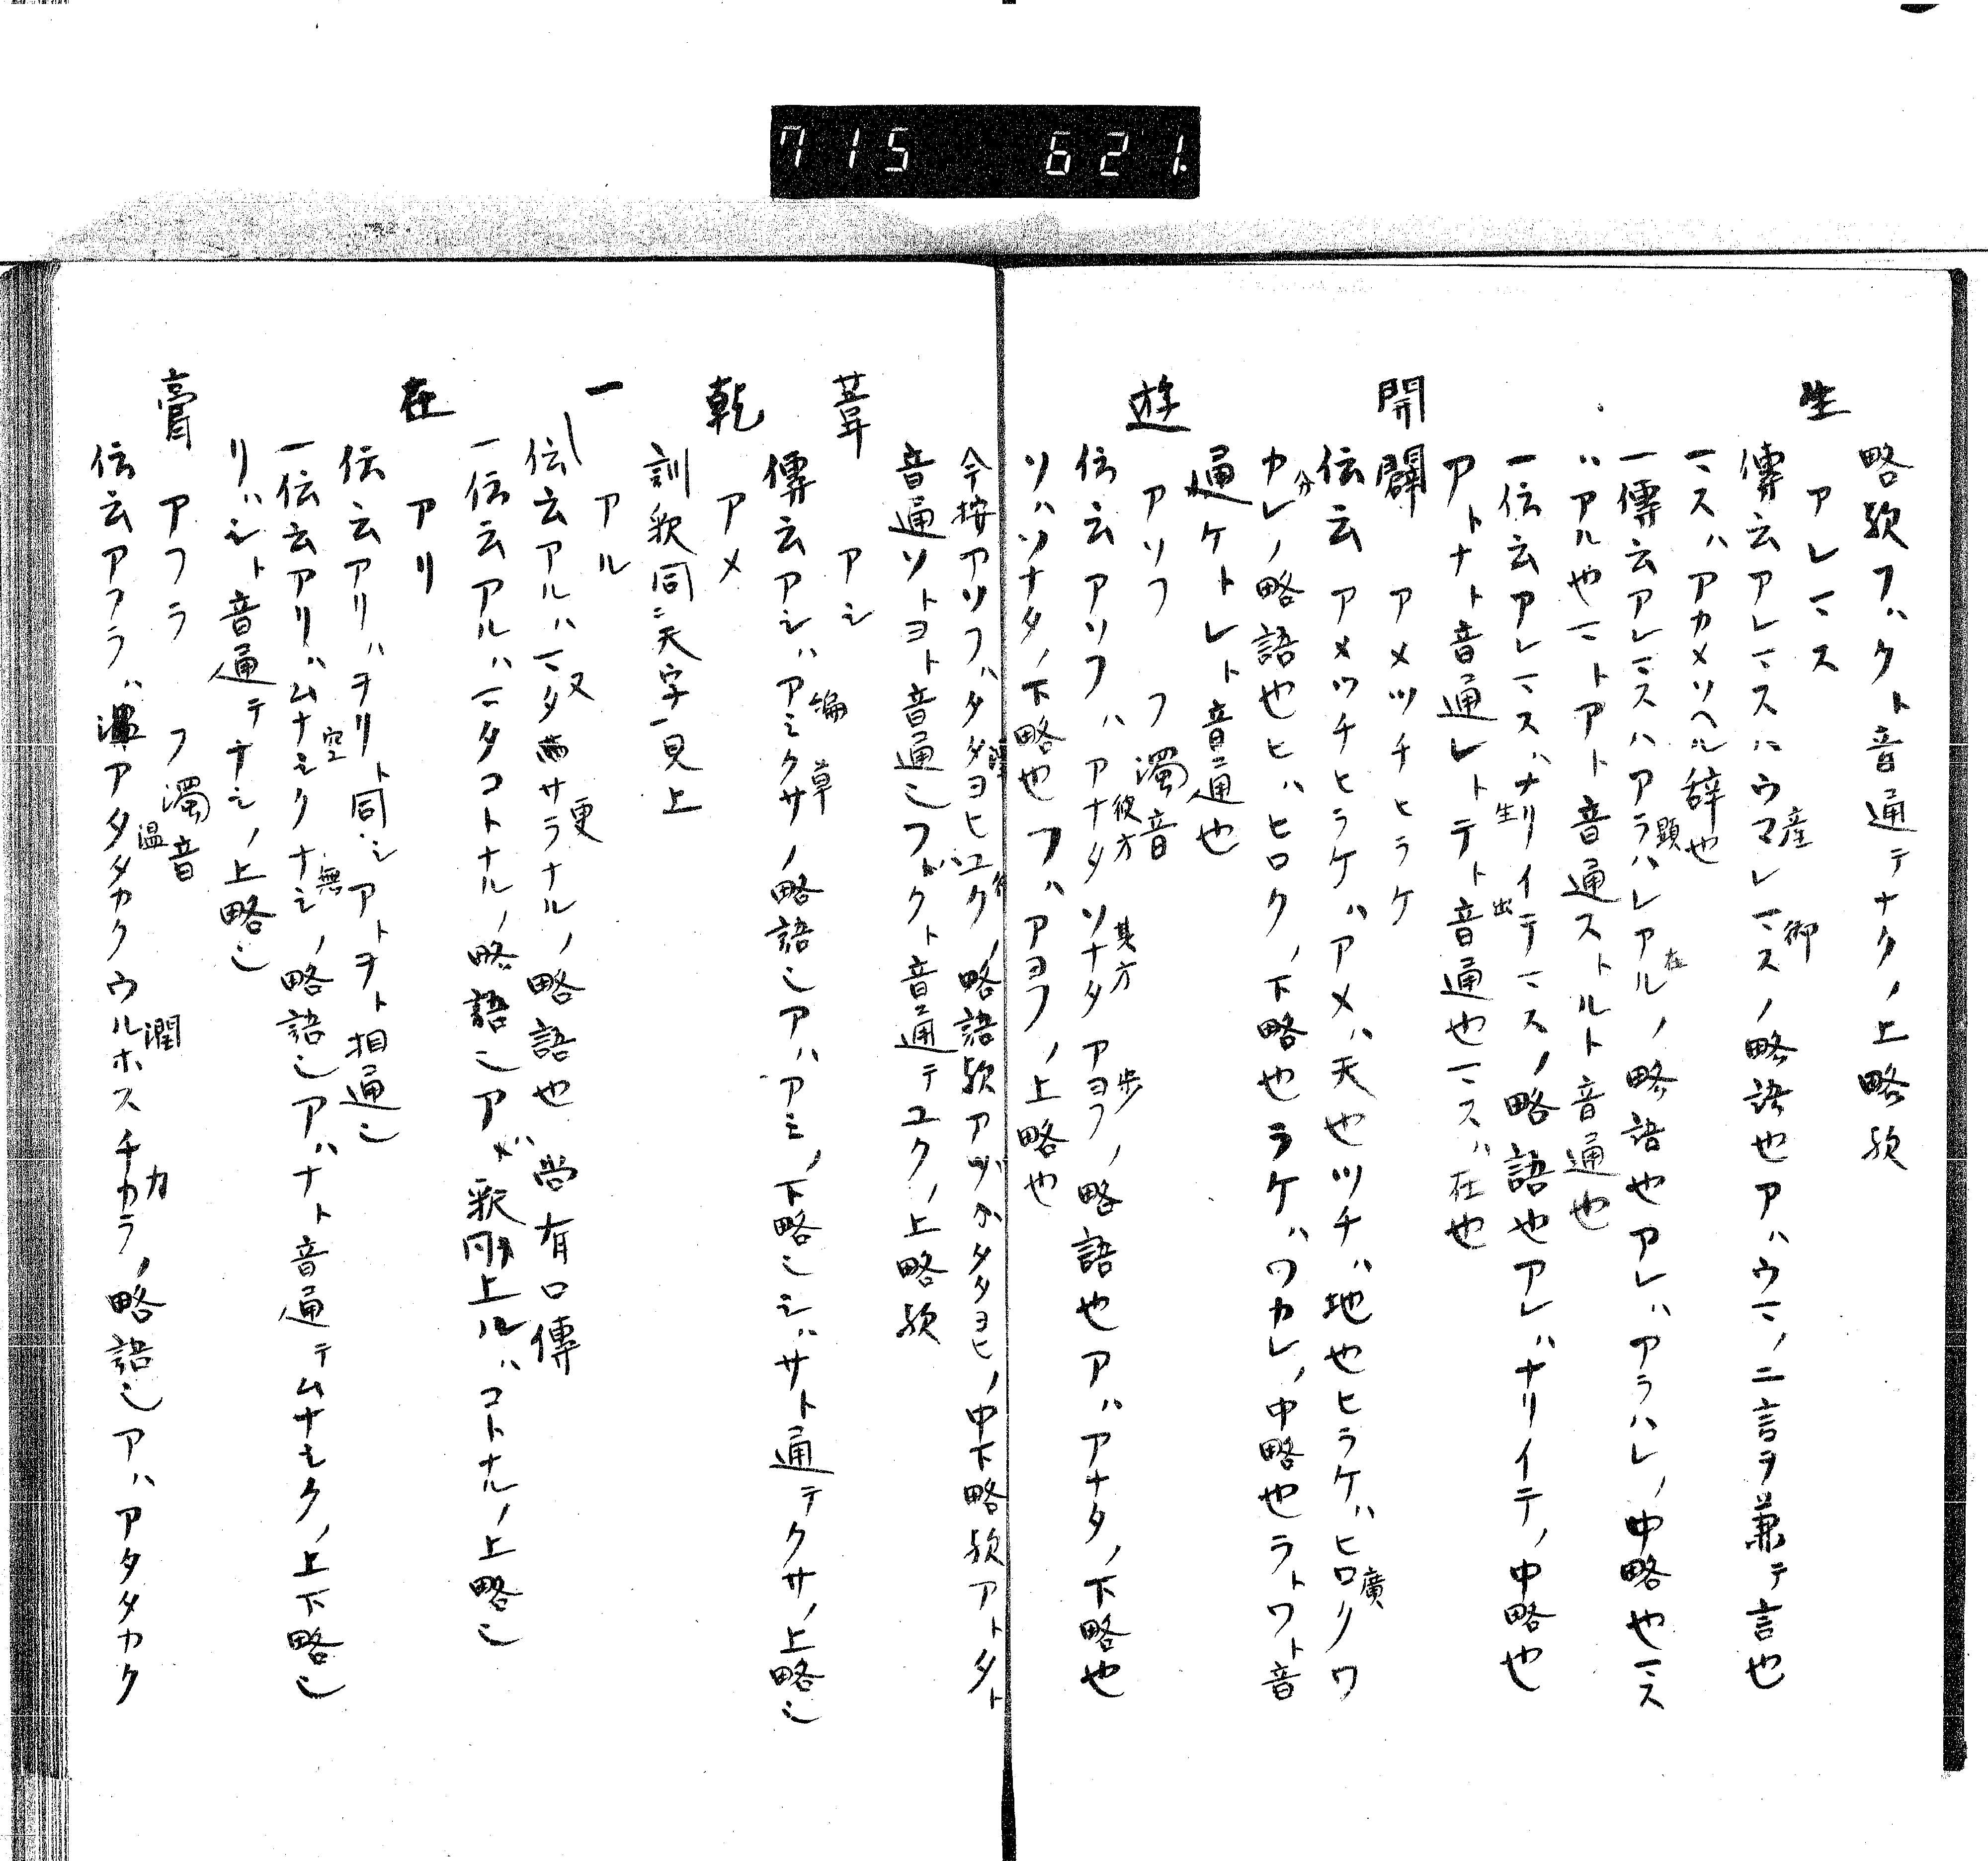 715 621.
略欤フハクト音通テナクノ上略欤
生 アレマス
傳云アレマスハウマレマスノ略語也アハウマノ二言ヲ兼テ言也
産 御
マスハアカメソヘル辞也
一傳云アレマスハアラハレアルノ略語也アレハアラハレノ中略也マス
顕 在
ハアル也マトアト音通ストルト音通也
一伝云アレマスハナリイテマスノ略語也アレハナリイテノ中略也
生 出
アトナト音通レトテト音通也マスハ在也
開闢 アメツチヒラケ
伝云アメツチヒラケハアメハ天也ツチハ地也ヒラケハヒロクワ
廣
カレノ略語也ヒハヒロクノ下略也ラケハワカレノ中略也ラトワト音
分
通ケトレト音通也
遊 アソフ フ濁音
伝云アソフハアナタソナタアヨフノ略語也アハアナタノ下略也
彼方 其方 歩
ソハソナタノ下略也フハアヨフノ上略也
今按アソフハタダヨヒユクノ略語欤アハタダヨヒノ中下略欤アトタト
音通ソトヨト音通シフトクト音通テユクノ上略欤
葦 アシ
傳云アシハアミクサノ略語シアハアミノ下略シシハサト通テクサノ上略シ
編 草
乾 アメ
訓歌同ニ天字一見上
一 アル
伝云アルハマタサラナルノ略語也尚有口傳
又 更
一伝云アルハマタコトナルノ略語シアハ歌同上ルハコトナルノ上略シ
在 アリ
伝云アリハヲリト同シアトヲト相通シ
一伝云アリハムナシクナシノ略語シアハナト音通テムナシクノ上下略シ
空 無
リハシト音通テナシノ上略シ
膏 アフラ フ濁音
伝云アフラハアタタカクウルホスチカラノ略語シアハアタタカク
温 潤 力